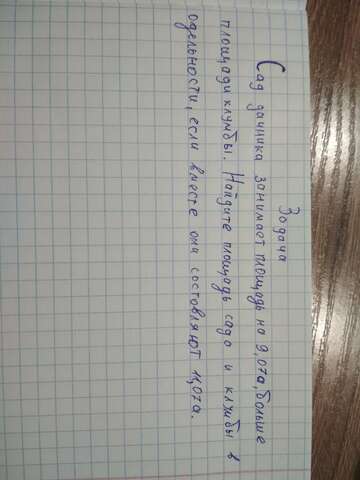 Задача
Сад дачника занимает площадь на 9,07а, больше
площади клумбы. Найдите площадь сада и клумбы в
одельности, если вместе она состовляют 11,07а.